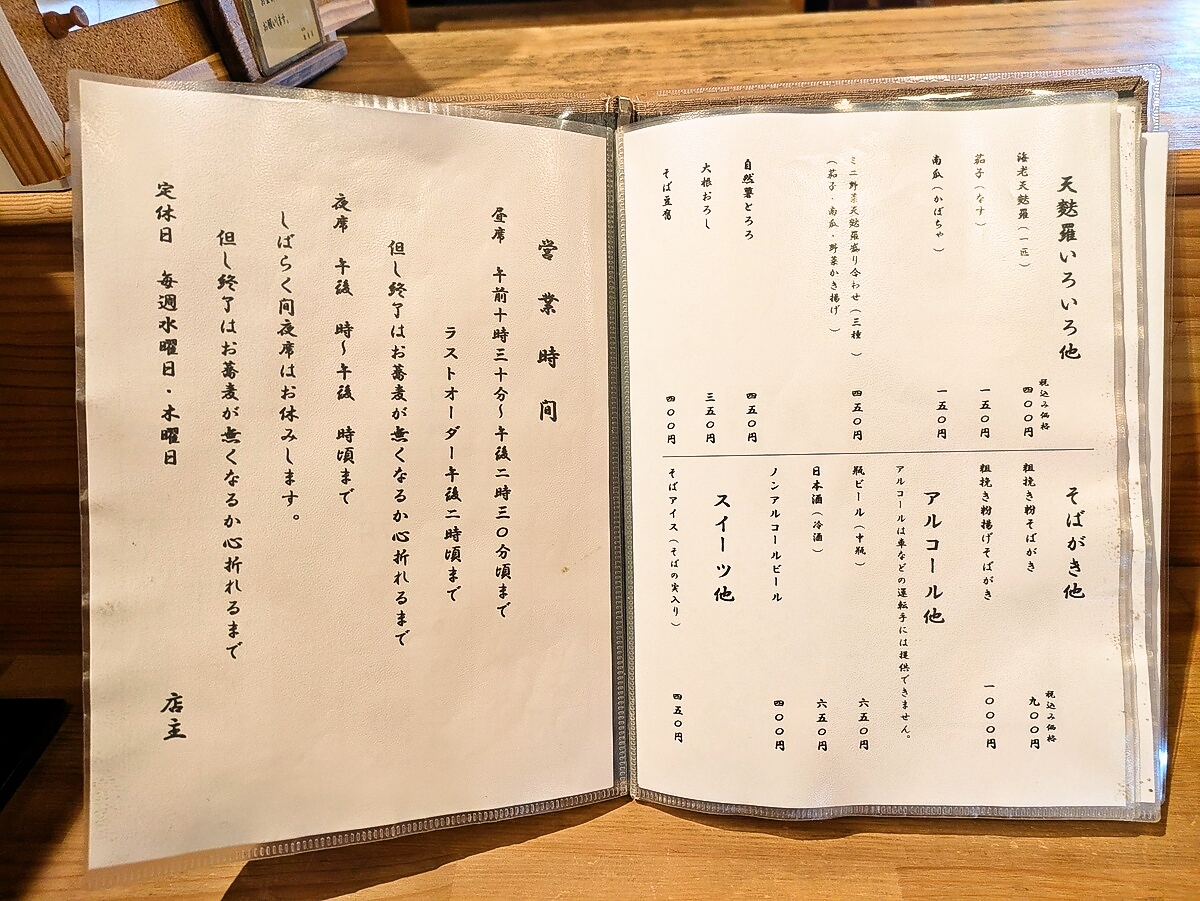 お願いします。
天麩羅いろいろ他
税込み価格
海老天麩羅(一匹) 四〇〇円
茄子(なす) 一五〇円
南瓜(かぼちゃ) 一五〇円
ミニ野菜天麩羅盛り合わせ(三種) 四五〇円
(茄子・南瓜・野菜かき揚げ)
自然薯とろろ 四五〇円
大根おろし 三五〇円
そば豆腐 四〇〇円
そばがき他
税込み価格
粗挽き粉そばがき 九〇〇円
粗挽き粉揚げそばがき 一〇〇〇円
アルコール他
アルコールは車などの運転手には提供できません。
瓶ビール(中瓶) 六五〇円
日本酒(冷酒) 六五〇円
ノンアルコールビール 四〇〇円
スイーツ他
そばアイス(そばの実入り) 四五〇円
営業時间
昼席 午前十時三十分〜午後二時三〇分頃まで
ラストオーダー午後二時頃まで
但し終了はお蕎麦が無くなるか心折れるまで
夜席 午後 時〜午後 時頃まで
しばらく间夜席はお休みします。
但し終了はお蕎麦が無くなるか心折れるまで
定休日 毎週水曜日・木曜日
店主